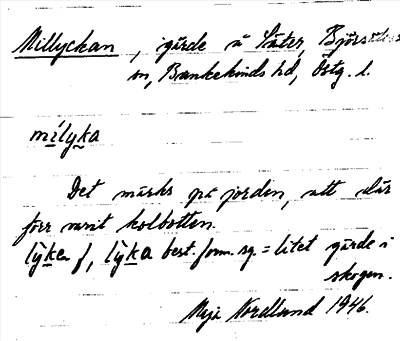 Millyckan, gärde å Säter, Björsäters
sn, Bankekinds hd, Östg. l.
mílyka
Det märks på jorden, att där
förr varit kolbotten.
lỳka f, lỳka best. form. sg. = litet gärde i
skogen.
Maja Nordlund 1946.